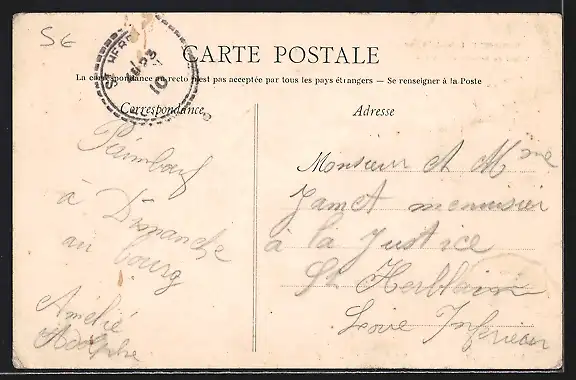 56
CARTE POSTALE
La correspondance au recto n'est pas acceptée par tous les pays étrangers — Se renseigner à la Poste
Correspondance
Adresse
Paimboeuf
à Dimanche
au bourg
Amélie
Adolphe
Monsieur et Mme
Jamet menuisier
à la Justice
St Herblain
Loire Inférieure